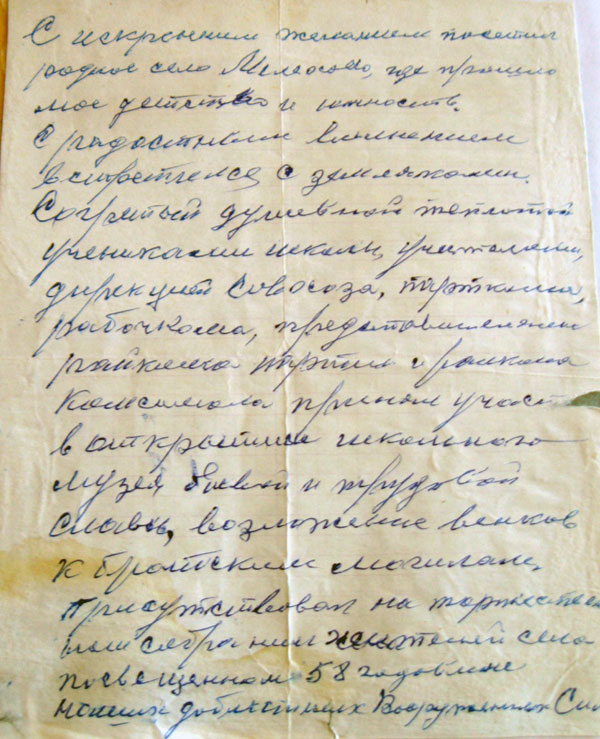 С искренним желанием посетил
родное село, где прошло
мое детство и юность.
С радостным волнением
встретился с земляками.
Согретый душевной теплотой
учениками школы, учителями,
дирекцией совхоза, парткома,
рабочкома, представителями
райкома партии и райкома
комсомола принял участ
в открытии школьного
музея боевой и трудовой
славы, возложение венков
к братским могилам.
Присутствовал на торжествен
ном собрании жителей села
посвещенном 58 годовщине
наших доблестных Вооруженных Сил